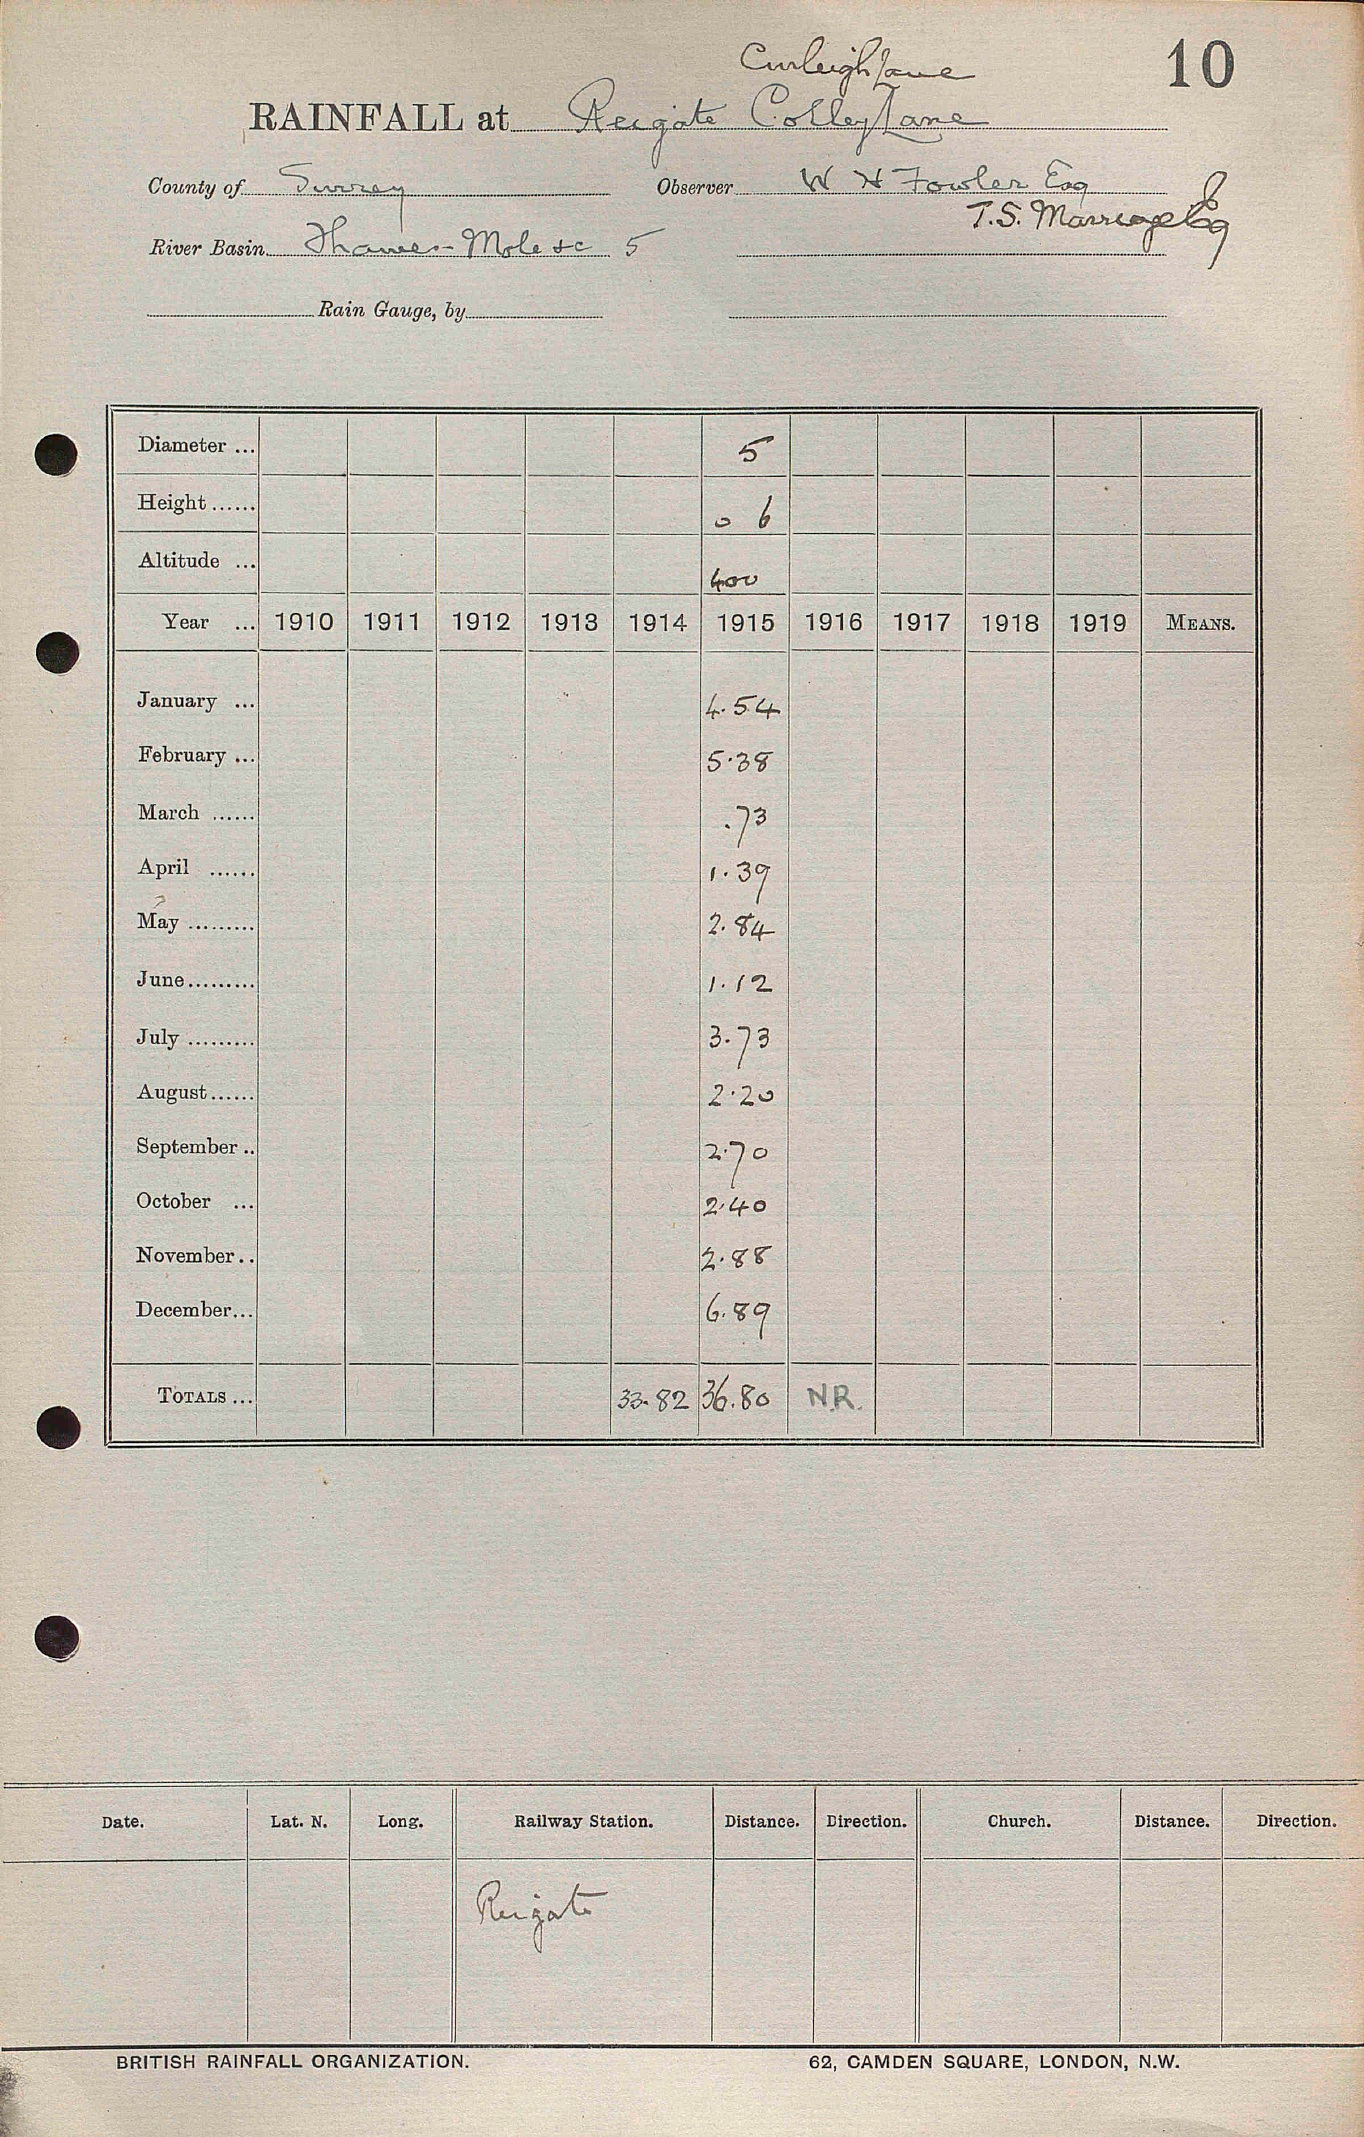 10
RAINFALL at Reigate Colley Lane
County of Surrey Observer W H Fowler Esq
T.S. Marriage Esq
River Basin Thames - Mole &c 5
Rain Gauge, by
Diameter ... 5
Height ...... 0 6
Altitude ... 400
Year ... 1910 1911 1912 1913 1914 1915 1916 1917 1918 1919 MEANS.
January ... 4.54
February ... 5.38
March ...... .73
April ...... 1.39
May ......... 2.84
June ......... 1.12
July ......... 3.73
August ...... 2.20
September .. 2.70
October ... 2.40
November .. 2.88
December ... 6.89
TOTALS ... 33.82 36.80 N.R.
Date. Lat. N. Long. Railway Station. Distance. Direction. Church. Distance. Direction.
Reigate
BRITISH RAINFALL ORGANIZATION. 62, CAMDEN SQUARE, LONDON, N.W.